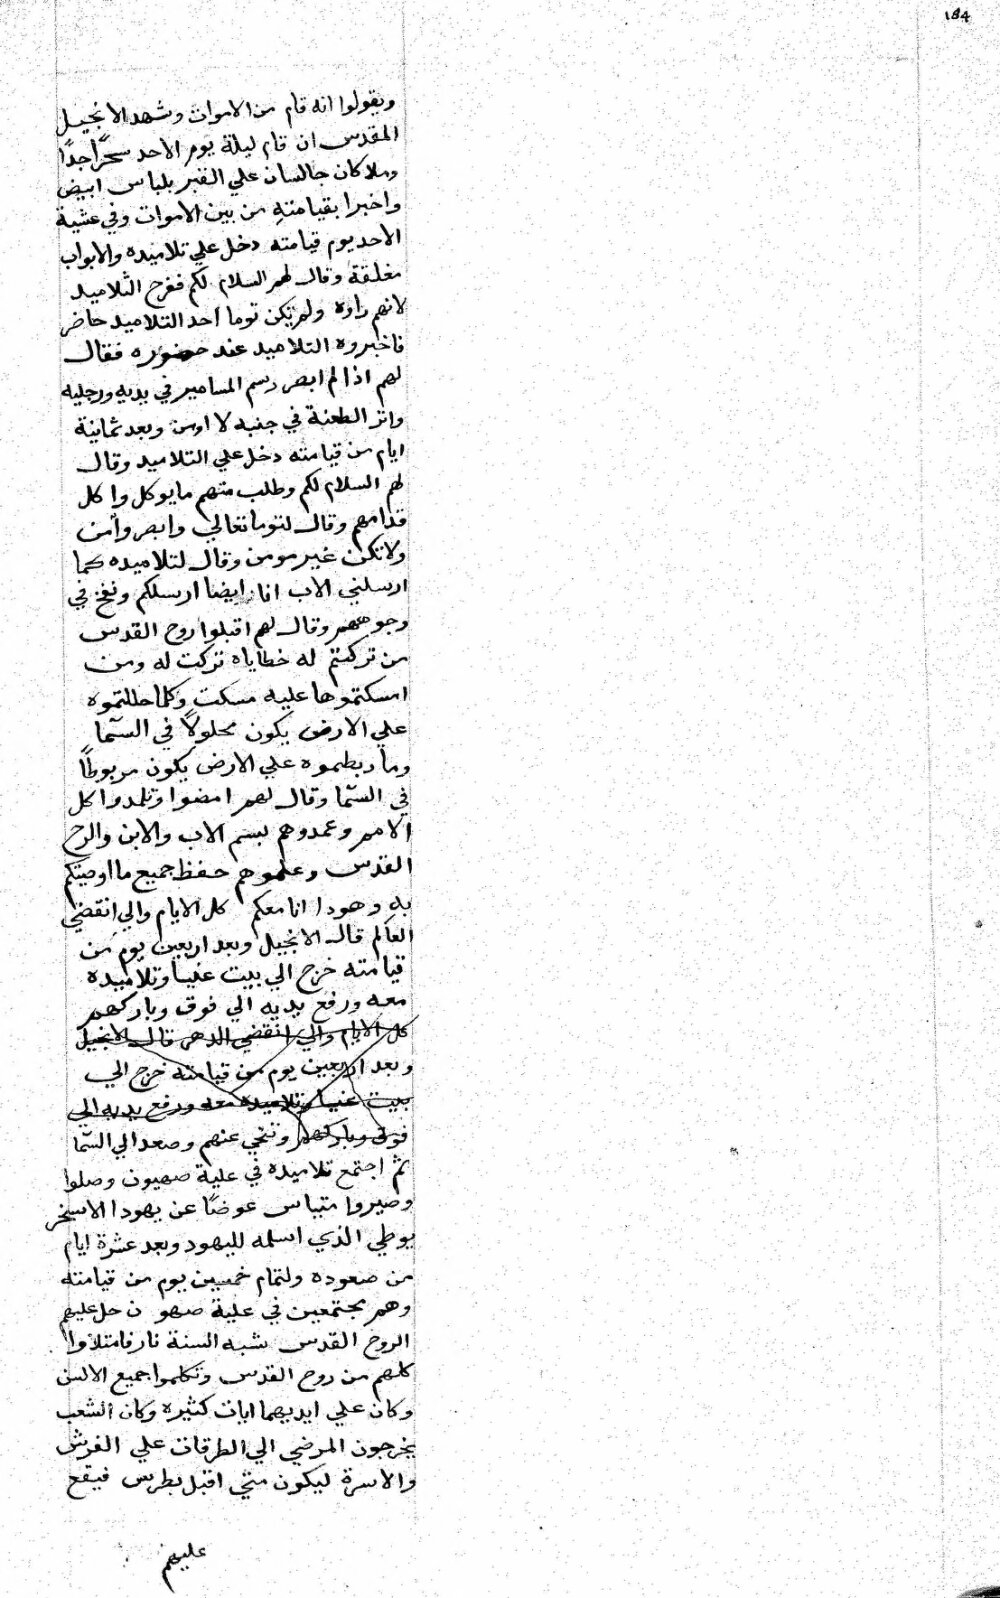 ١٨٤
ويقولوا انه قام من الاموات وشهد الانجيل
المقدس ان قام ليلة يوم الاحد سحرًا جدًا
وملاكان جالسان علي القبر بلباس ابيض
واخبرا بقيامته من بين الاموات وفي عشية
الاحد يوم قيامته دخل علي تلاميده والابواب
مغلقة وقال لهم السلام لكم ففرح التلاميد
لانهم راوه ولم يكن توما احد التلاميد حاضر
فاخبروه التلاميد عند حضوره فقال
لهم اذا لم ابصر رسم المسامير في يديه ورجليه
واتر الطعنة في جنبه لا اومن وبعد ثمانية
ايام من قيامته دخل علي التلاميد وقال
لهم السلام لكم وطلب منهم ما يوكل واكل
قدامهم وقال لتوما تعالي وابصر وأمن
ولا تكن غير مومن وقال لتلاميده كما
ارسلني الاب انا ايضا ارسلكم ونفخ في
وجوههم وقال لهم اقبلوا روح القدس
من تركتم له خطاياه تركت له ومن
امسكتموها عليه مسكت وكلما حللتموه
علي الارض يكون محلولًا في السما
وما ربطموه علي الارض يكون مربوطًا
في السما وقال لهم امضوا وتلمدوا كل
الامم وعمدوهم بسم الاب والابن والرح
القدس وعلموهم حفظ جميع ما اوصيتكم
به وهودا انا معكم كل الايام والي انقضي
العالم قال الانجيل وبعد اربعين يوم من
قيامته خرج الي بيت عنيا وتلاميده
معه ورفع يديه الي فوق وباركهم
كل الايام والي انقضي الدهر قال الانجيل
وبعد اربعين يوم من قيامته خرج الي
بيت عنيا وتلاميده معه ورفع يديه الي
فوق وباركهم وتنحي عنهم وصعد الي السما
ثم اجتمع تلاميده في علية صهيون وصلوا
وصيروا متياس عوضًا عن يهودا الاسخر
يوطي الذي اسلمه لليهود وبعد عشرة ايام
من صعوده ولتمام خمسين يوم من قيامته
وهم مجتمعين في علية صهو ن حل عليهم
الروح القدس شبه السنة نار فامتلاوا
كلهم من روح القدس وتكلموا جميع الالسن
وكان علي ايديهما ايات كثيره وكان الشعب
يخرجون المرضي الي الطرقات علي الفرش
والاسرة ليكون متي اقبل بطرس فيقع
عليهم